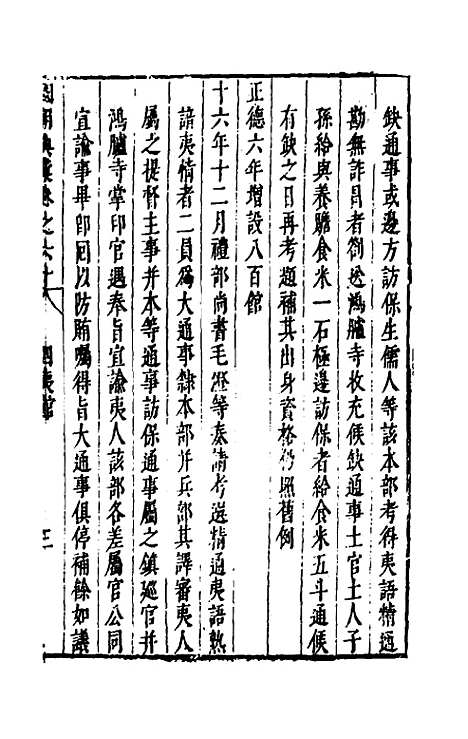 缺通事或邊方訪保生儒人等該本部考得夷語精通
勘無詐冒者劄送鴻臚寺收充候缺通事土官土人子
孫給與養贍食米一石極邊訪保者給食米五斗通候
有缺之日再考題補其出身資格仍照舊例
正德六年增設八百館
十六年十二月禮部尚書毛澄等奏請考選精通夷語熟
諳夷情者二員為大通事隸本部并兵部其譯審夷人
屬之提督主事并本等通事訪保通事屬之鎮廵官并
鴻臚寺掌印官遇奉旨宣諭夷人該部各差屬官公同
宣諭事畢即回以防賄囑得旨大通事俱停補餘如議
國朝典彙卷之六十 四夷館 三